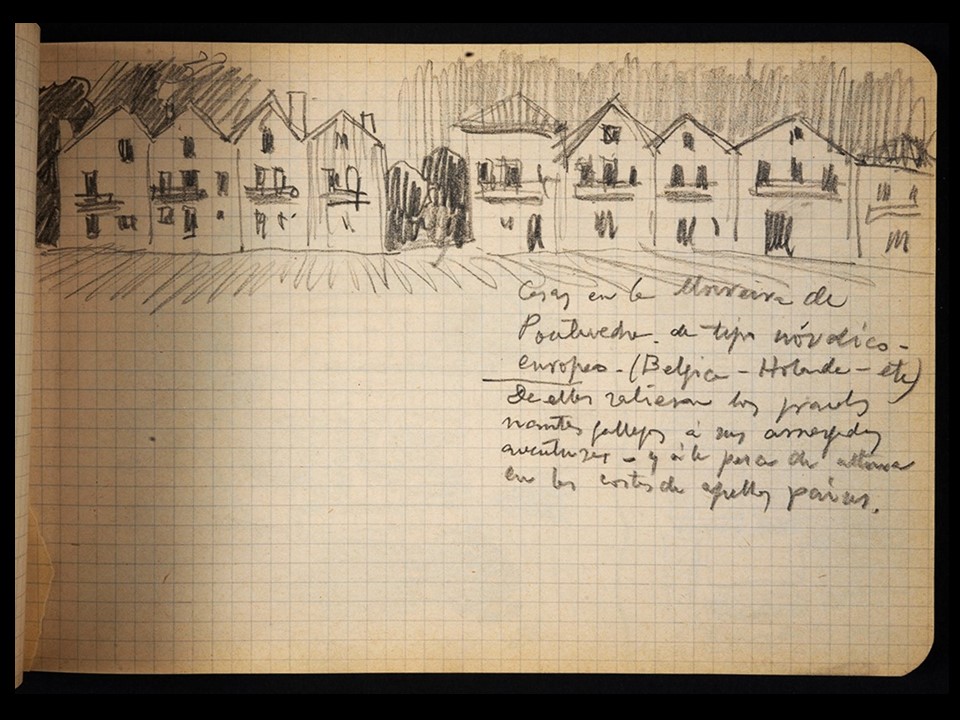 Casas en la Moureira de
Pontevedra. de tipo nórdico-
europeo - (Belgica - Holanda - etc)
De ellas salieron los grandes
nautas gallegos á sus arriesgadas
aventuras - y á la pesca de altura
en las costas de aquellos países.